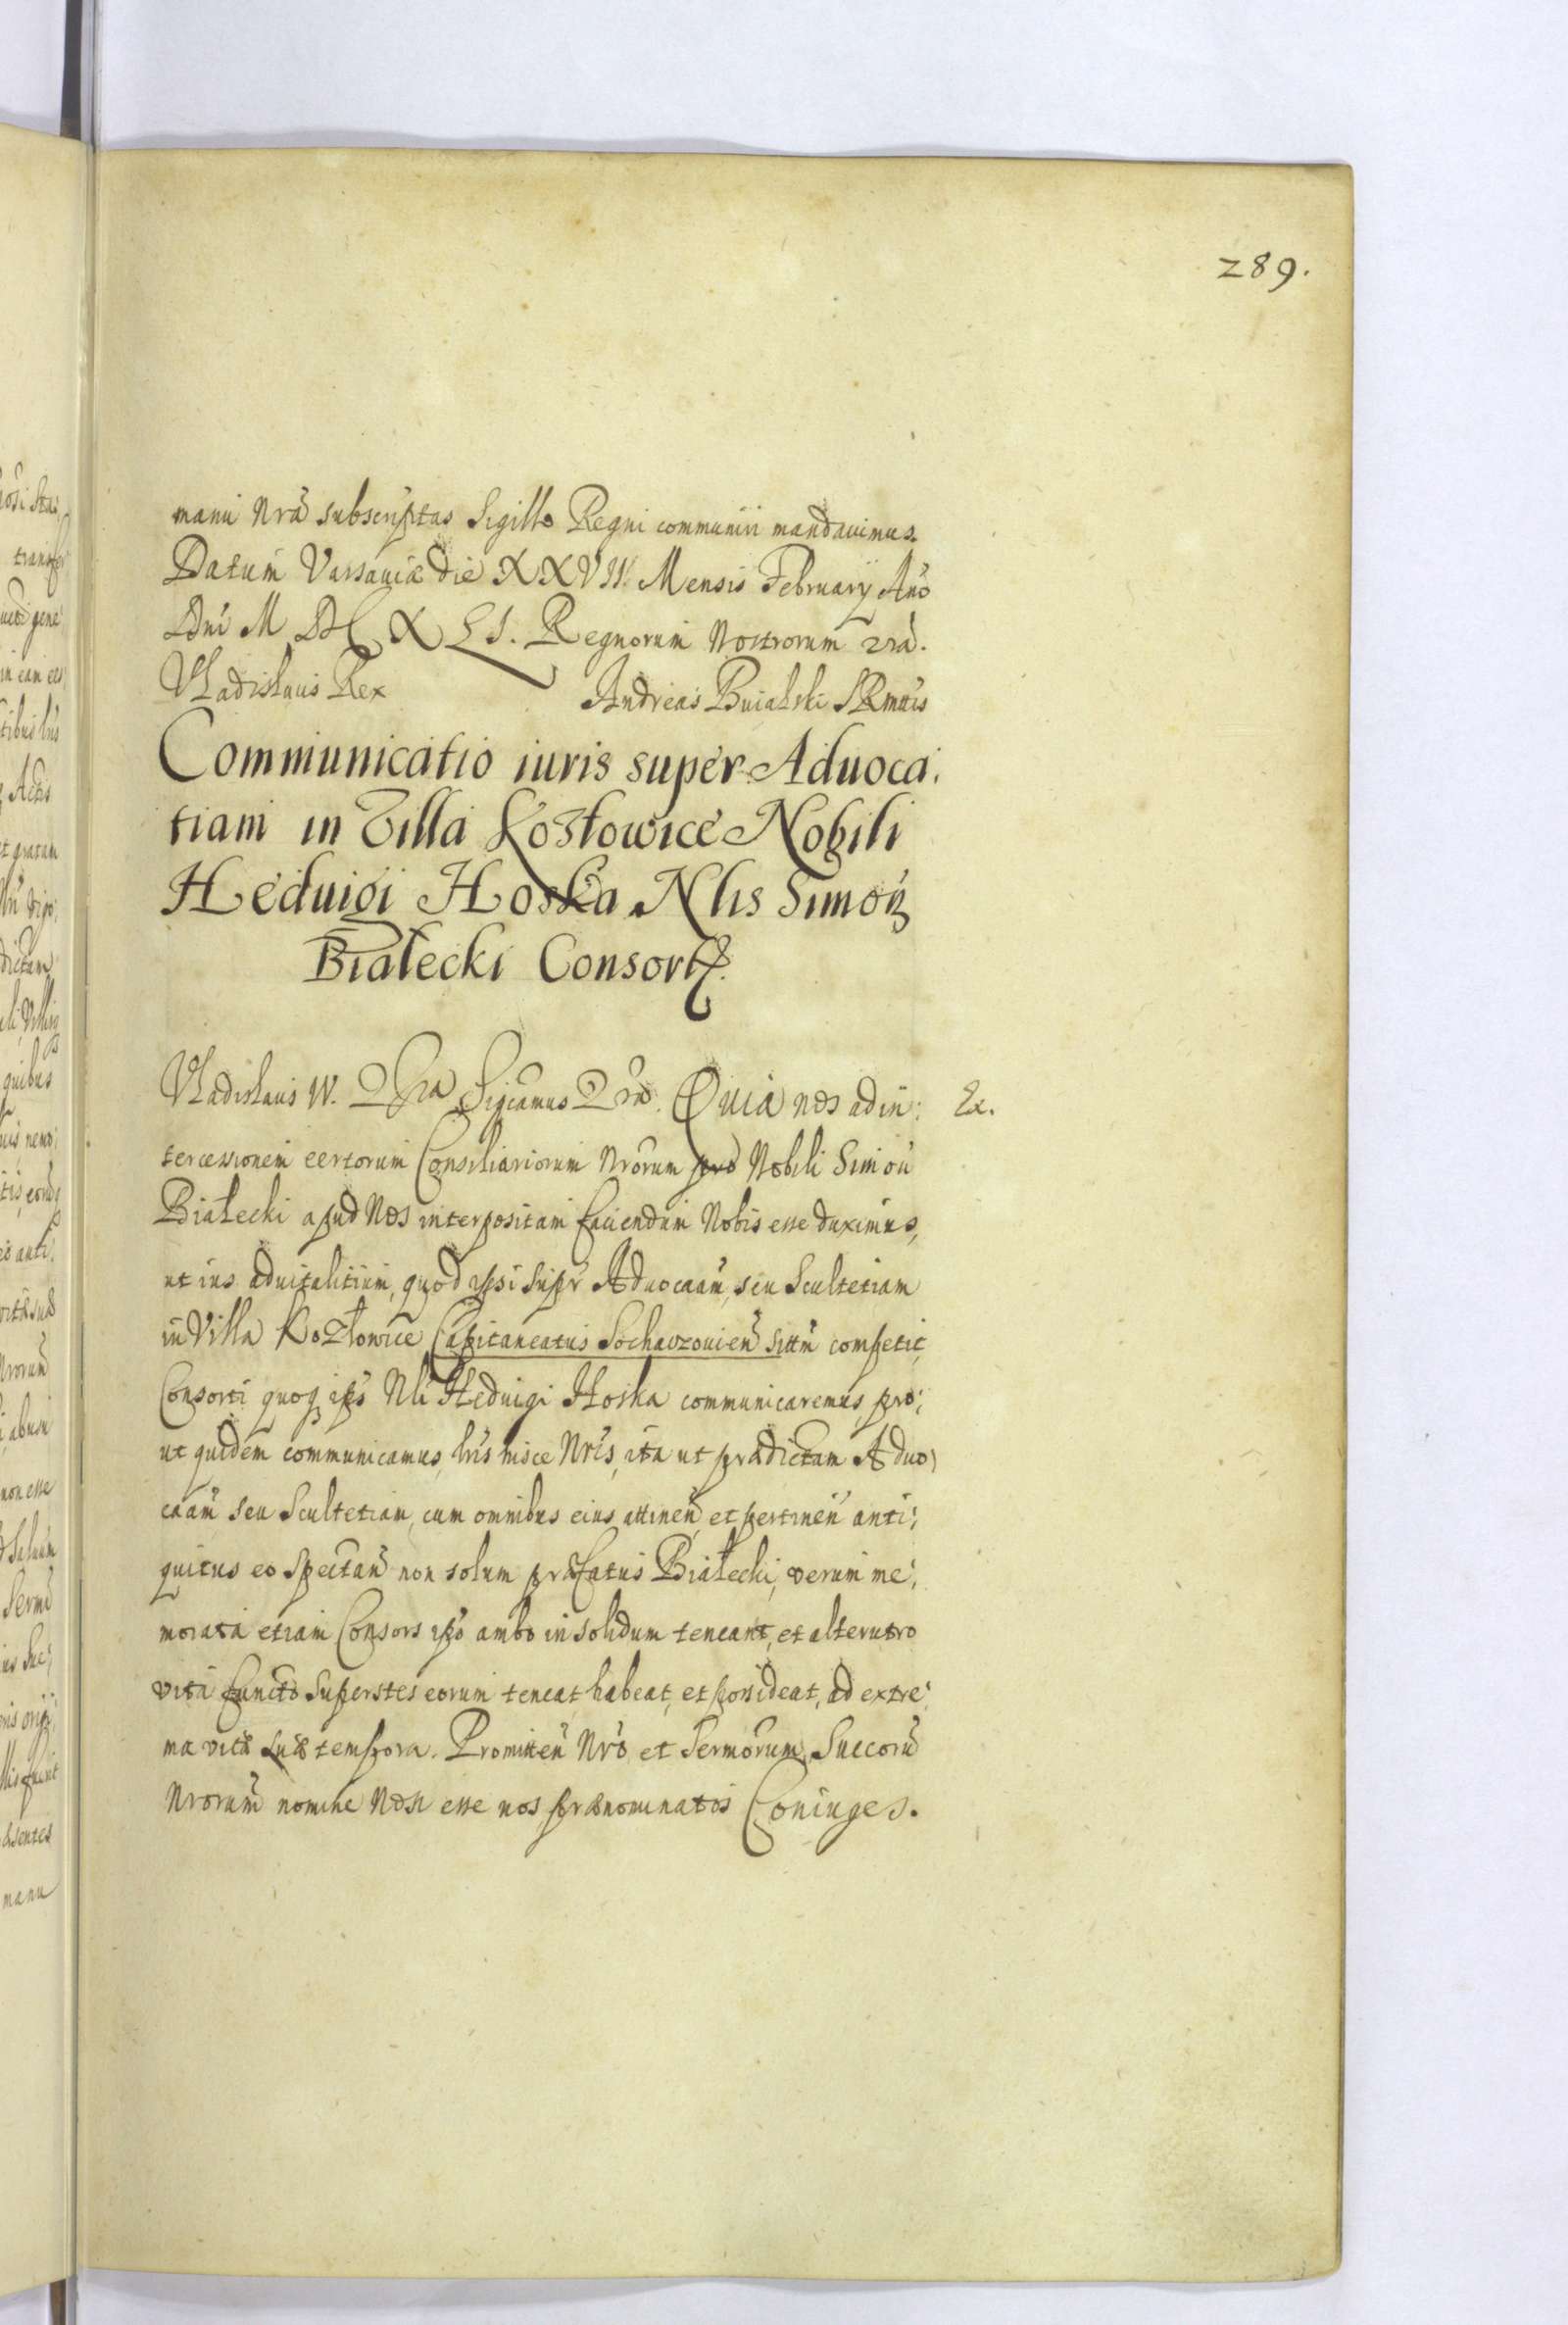 289.
manu Nrã subscriptas Sigillo Regni communiri mandauimus.
Datum Varsauiæ die XXVIV. Mensis February Año
Dñi M DC X LI. Regnorum Nostrorum zrã.
Vladislaus Rex Andreas Buialski SRMttis
Communicatio iuris super Aduoca:
tiam in Villa Kozłowice Nobili
Heduigi Hoska Nlis Simoñ
Białecki Consorti.
Vladislaus IV. Dei Gra Sigcamus zrã. Quia nos ad in: Ex.
tercessionem certorum Consiliariorum Nrorum pro Nobili Simoñ
Białecki apud Nos interpositam fauendum Nobis esse duximus,
ut ius aduitalitium, quod ipsi supr Aduocaañ, seu Scultetiam
in Villa Kozłowice Capitaneatus Sochaczouieñ sittñ competit,
Consorti quoq ips Nli Heduigi Hoska communicaremus, pro:
ut quidem communicamus, lris hisce Nris, ita ut prædictam Aduo)
caañ seu Scultetiam, cum omnibus eius attineñ et pertineñ anti:
quitus eo spectañ non solum præfatus Białecki, verum me:
morata etiam Consors ips ambo in solidum teneant, et alterutro
vita functo superstes eorum teneat, habeat, et possideat, ad extre:
ma vitæ suæ tempora. Promitteñ Nro et Sermorum Succorũ
Nrorum nomine Nosn esse nos prænominatos Coniuges.